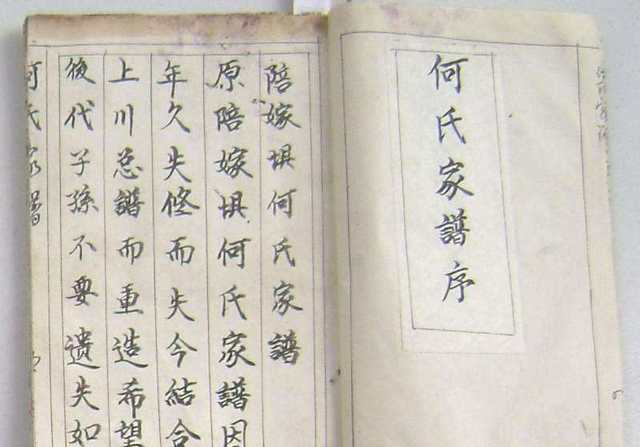 何氏家譜序
陪嫁垻何氏家譜
原陪嫁垻何氏家譜因
年久失修而失今結合
上川总譜而重造希望
後代子孫不要遺失如
何氏家譜